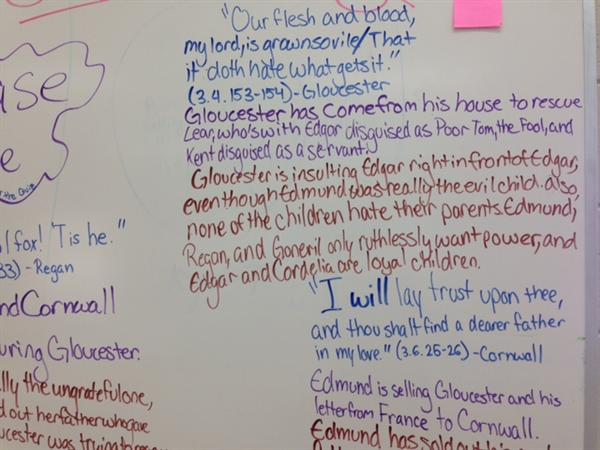 "Our flesh and blood,
my lord, is grown so vile / That
it doth hate what gets it."
(3.4.153-154) - Gloucester
Gloucester has come from his house to rescue
Lear, who's with Edgar disguised as Poor Tom, the Fool, and
Kent disguised as a servant.
Gloucester is insulting Edgar right in front of Edgar,
even though Edmund was really the evil child. also,
none of the children hate their parents. Edmund,
Regan, and Goneril only ruthlessly want power, and
Edgar and Cordelia are loyal children.
"I will lay trust upon thee,
and thou shalt find a dearer father
in my love." (3.6.25-26) - Cornwall
Edmund is selling Gloucester and his
letter from France to Cornwall.
Edmund has sold out his
fox! 'Tis he."
33) - Regan
nd Cornwall
uring Gloucester.
lly the ungrateful one,
d out her father who gave
ucester was trying to